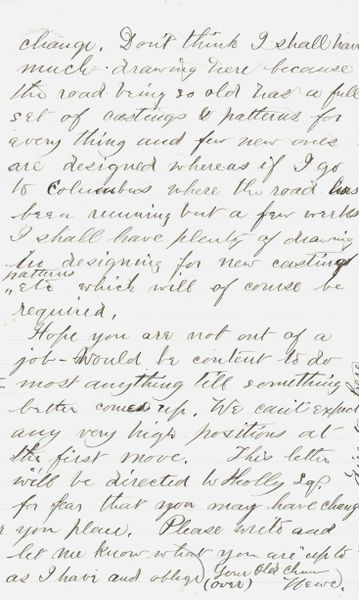 change. Don't think I shall have
much drawing here because
the road being so old has a full
set of castings & patterns for
every thing and few new ones
are designed whereas if I go
to Columbus where the road has
been a running but a few weeks
I shall have plenty of drawing
in designing for new castings
patterns
" etc which will of course be
required.
Hope you are not out of a
job - Would be content to do
most anything till something
better comes up. We can't expect
any very high positions at
the first move. This letter
will be directed to Holly Sq.
for fear that you may have change
you place. Please write and
let me know what you are "up to"
as I have and oblige
Your Old Chum
(over) Newc.